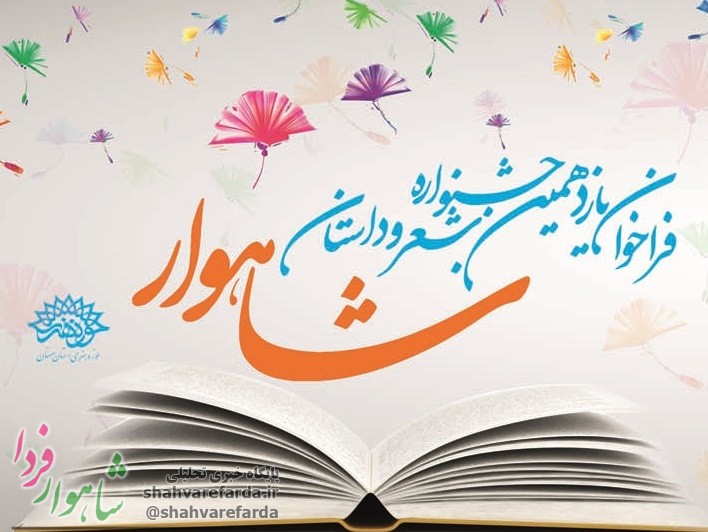 فراخوان یازدهمین جشنواره
شعر و داستان
شاهوار
حوزه هنری
حوزه هنری استان سمنان
شاهوار فردا
پایگاه خبری تحلیلی
shahvarefarda.ir
@shahvarefarda